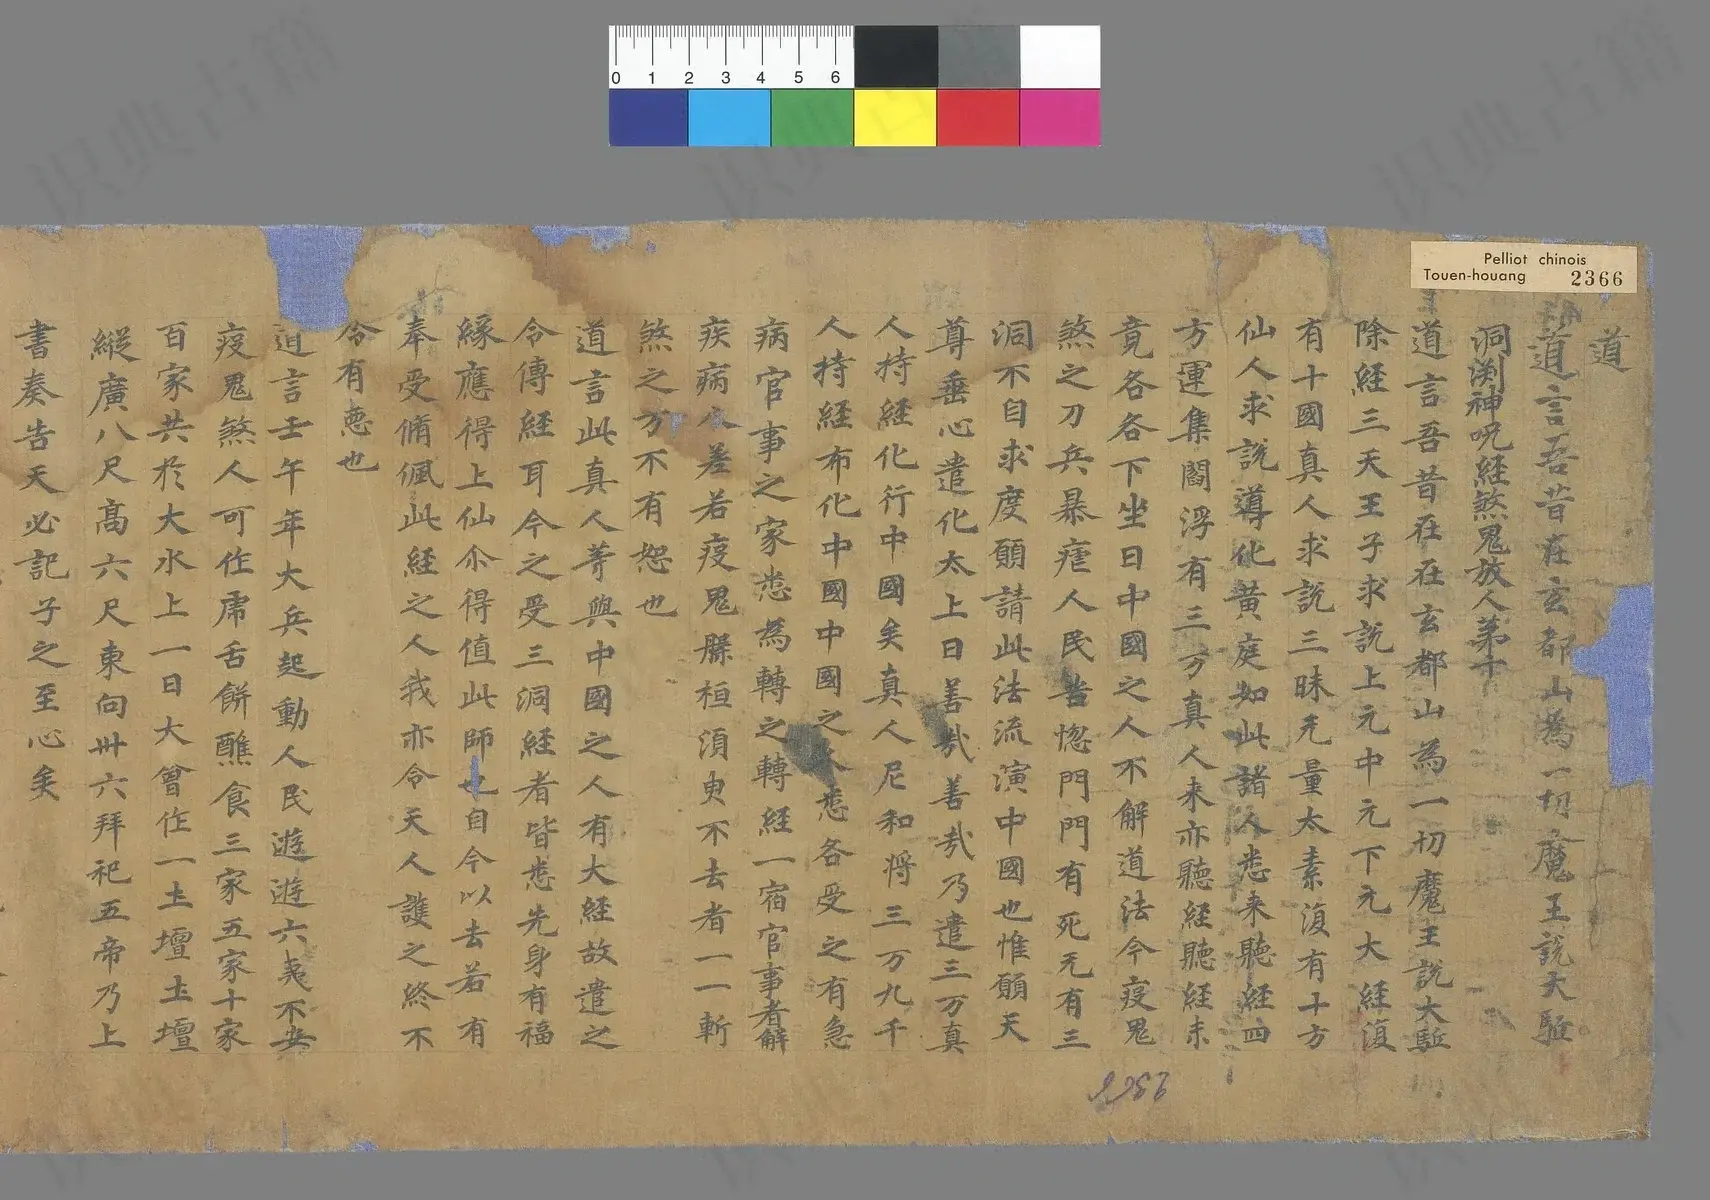 0 1 2 3 4 5 6
Pelliot chinois
Touen-houang 2366
道
道言吾昔在玄都山為一切魔王說大駈
洞渊神呪經煞鬼放人第十
道言吾昔在在玄都山為一切魔王說大駈
除經三天王子求說上元中元下元大經復
有十國真人求說三昧无量太素復有十方
仙人求說導化黃庭如此諸人悉来聽經四
方運集閻浮有三万真人来亦聽經聽經未
竟各各下坐曰中國之人不解道法今疫鬼
煞之刀兵暴瘧人民昔惚門門有死无有三
洞不自求度願請此法流演中國也惟願天
尊垂心遣化太上曰善哉善哉乃遣三万真
人持經化行中國矣真人尼和将三万九千
人持經布化中國中國之人悉各受之有急
病官事之家悉為轉之轉經一宿官事者解
疾病人差若疫鬼縢桓須臾不去者一一斬
煞之万不有恕也
道言此真人等與中國之人有大經故遣之
令傳經耳今之受三洞經者皆悉先身有福
緣應得上仙尒得值此師也自今以去若有
奉受脩佩此經之人我亦令天人護之終不
令有惡也
道言壬午年大兵起動人民遊遊六夷不安
疫鬼煞人可作虎舌餅醮食三家五家十家
百家共於大水上一日大會作一土壇土壇
縱廣八尺高六尺東向卌六拜祀五帝乃上
書奏告天必記子之至心矣
2366